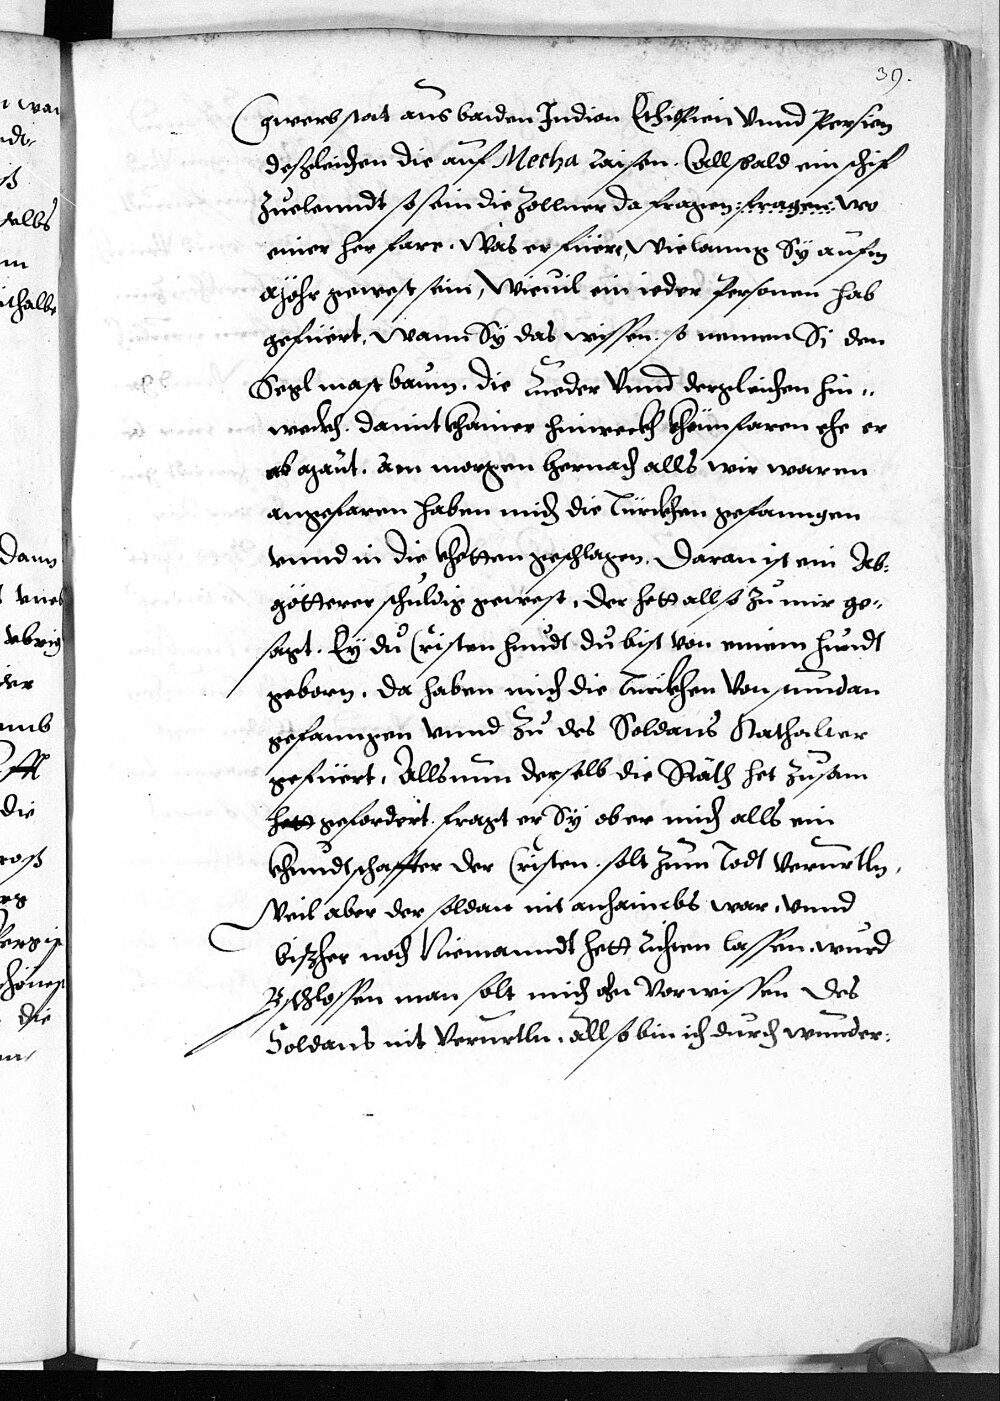 39.
gwerb stat aus baiden Indien Ethiopien vnnd Persien
desgleichen die auf Mecha raisen. Allsbald ein schif
zuelenndt so sein die Zollner da fragen :fragen: wo
einer her fare. Was er füere, wie lanng Sy aufm
Mör gewest sein, wieuil ein ieder Personen hab
gefüert, wann Sy das wissen so nemen Si den
Segl mastbaum. die Rueder vnnd dergleichen hin=
weckh. damit khainer hinweckh khün faren ehe er
ab zalt. am morgen hernach alls wir waren
angefaren haben mich die Türckhen gefanngen
vnnd in die khetten geschlagen. Daran ist ein Ab=
götterer schuldig gewest, der hett allso zu mir ge=
sagt. Ey du Cristen hundt du bist von einem hundt
geborn. da haben mich die Türckhen von stundan
gefanngen vnnd zu des Soldans Stathalter
gefüert. Alls nun derselb die Räth het zusam
hett gefordert. fragt er Sy ob er mich alls ein
khundtschaffter der Cristen solt zum Todt verurtln.
Weil aber der soldan nit anhaimbs war, vnnd
bisher noch Niemanndt hett richten lassen. wurd
bschlossen man solt mich ohn vorwissen des
Soldans nit verurtln. allso bin ich durch wunder=